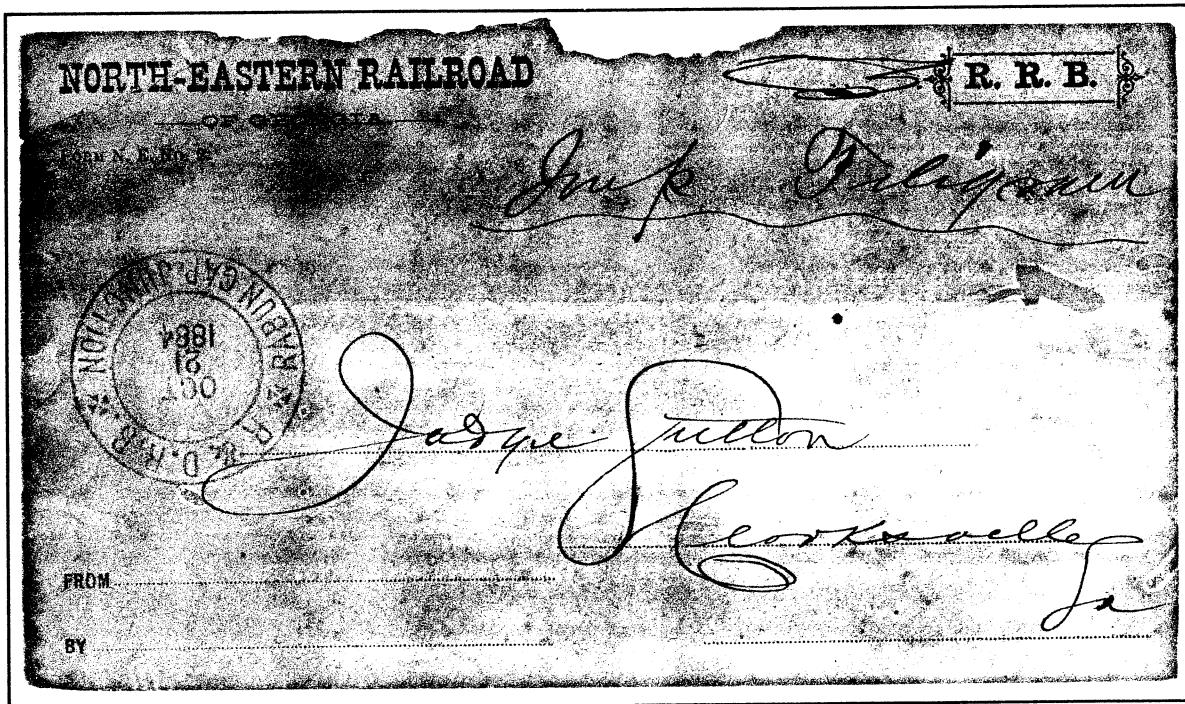 NORTH-EASTERN RAILROAD
OF GEORGIA
FORM N. E. No. 2.
R. R. B.
RABUN GAP JUNCTION
R. & D. R. R.
OCT
21
1884
Judge Sutton
Clarksville
Ga
FROM
BY